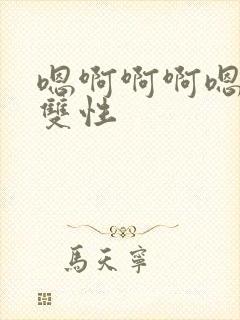 嗯啊啊啊嗯
雙性
馬天寧